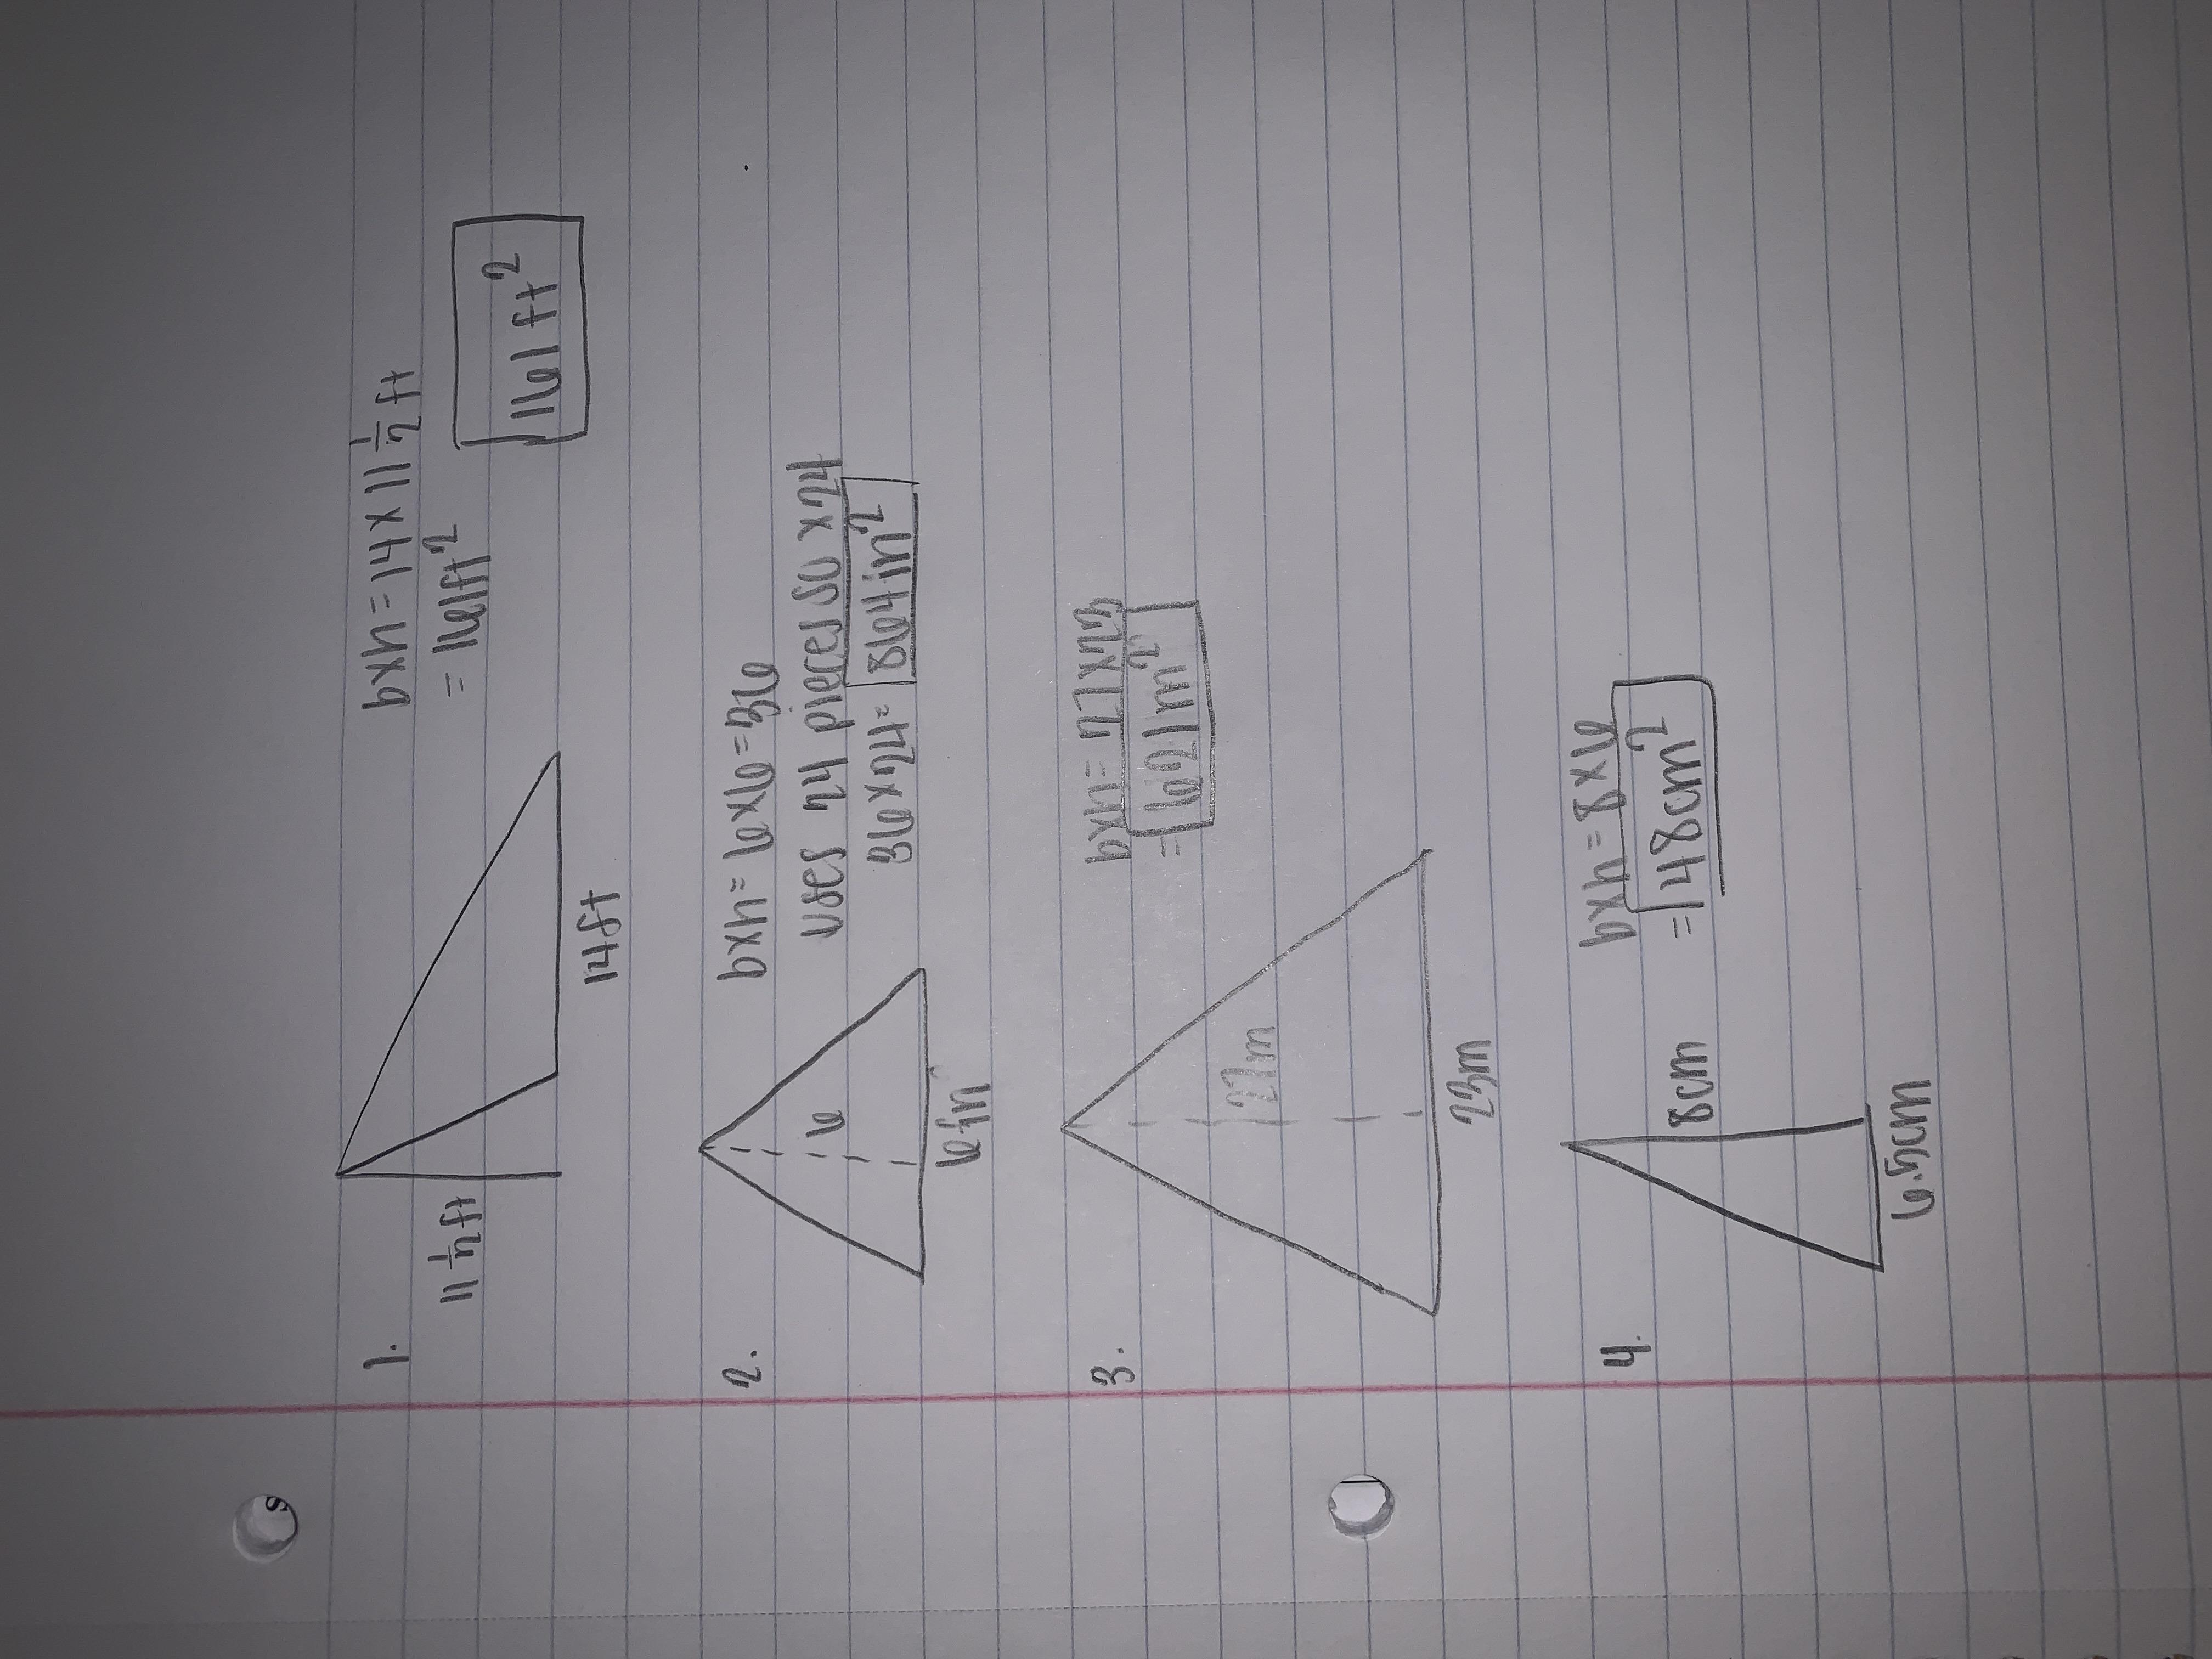 1.
11 1/2 ft
14ft
bxh = 14 x 11 1/2 ft
= 161ft²
161 ft²
2.
6
6in
bxh = 6x6 = 36
uses 24 pieces so x24
36 x 24 = 864in²
3.
27m
23m
bxh = 27x23
= 621m²
4.
8cm
6.5cm
bxh = 8x6
= 48cm²